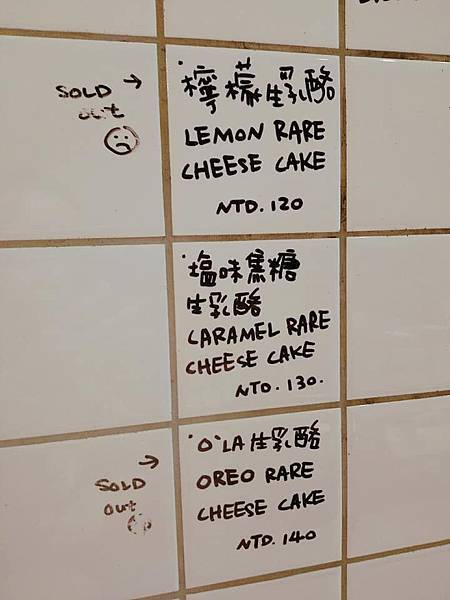 SOLD →
out
·檸檬生乳酪
LEMON RARE
CHEESE CAKE
NTD. 120
·塩味焦糖
生乳酪
CARAMEL RARE
CHEESE CAKE
NTD. 130.
SOLD →
out
·O`LA生乳酪
OREO RARE
CHEESE CAKE
NTD. 140